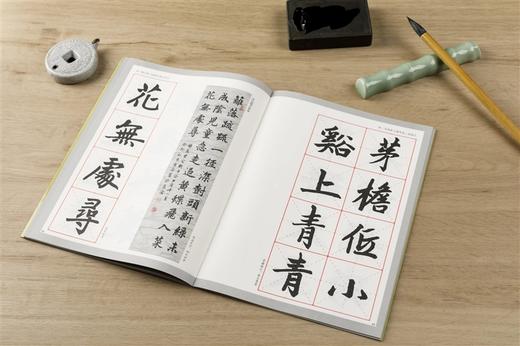 花無處尋
籬落疏疏一徑深樹頭新綠未
成陰兒童急走追黃蝶飛入菜
花無處尋
茅檐低小
谿上青青